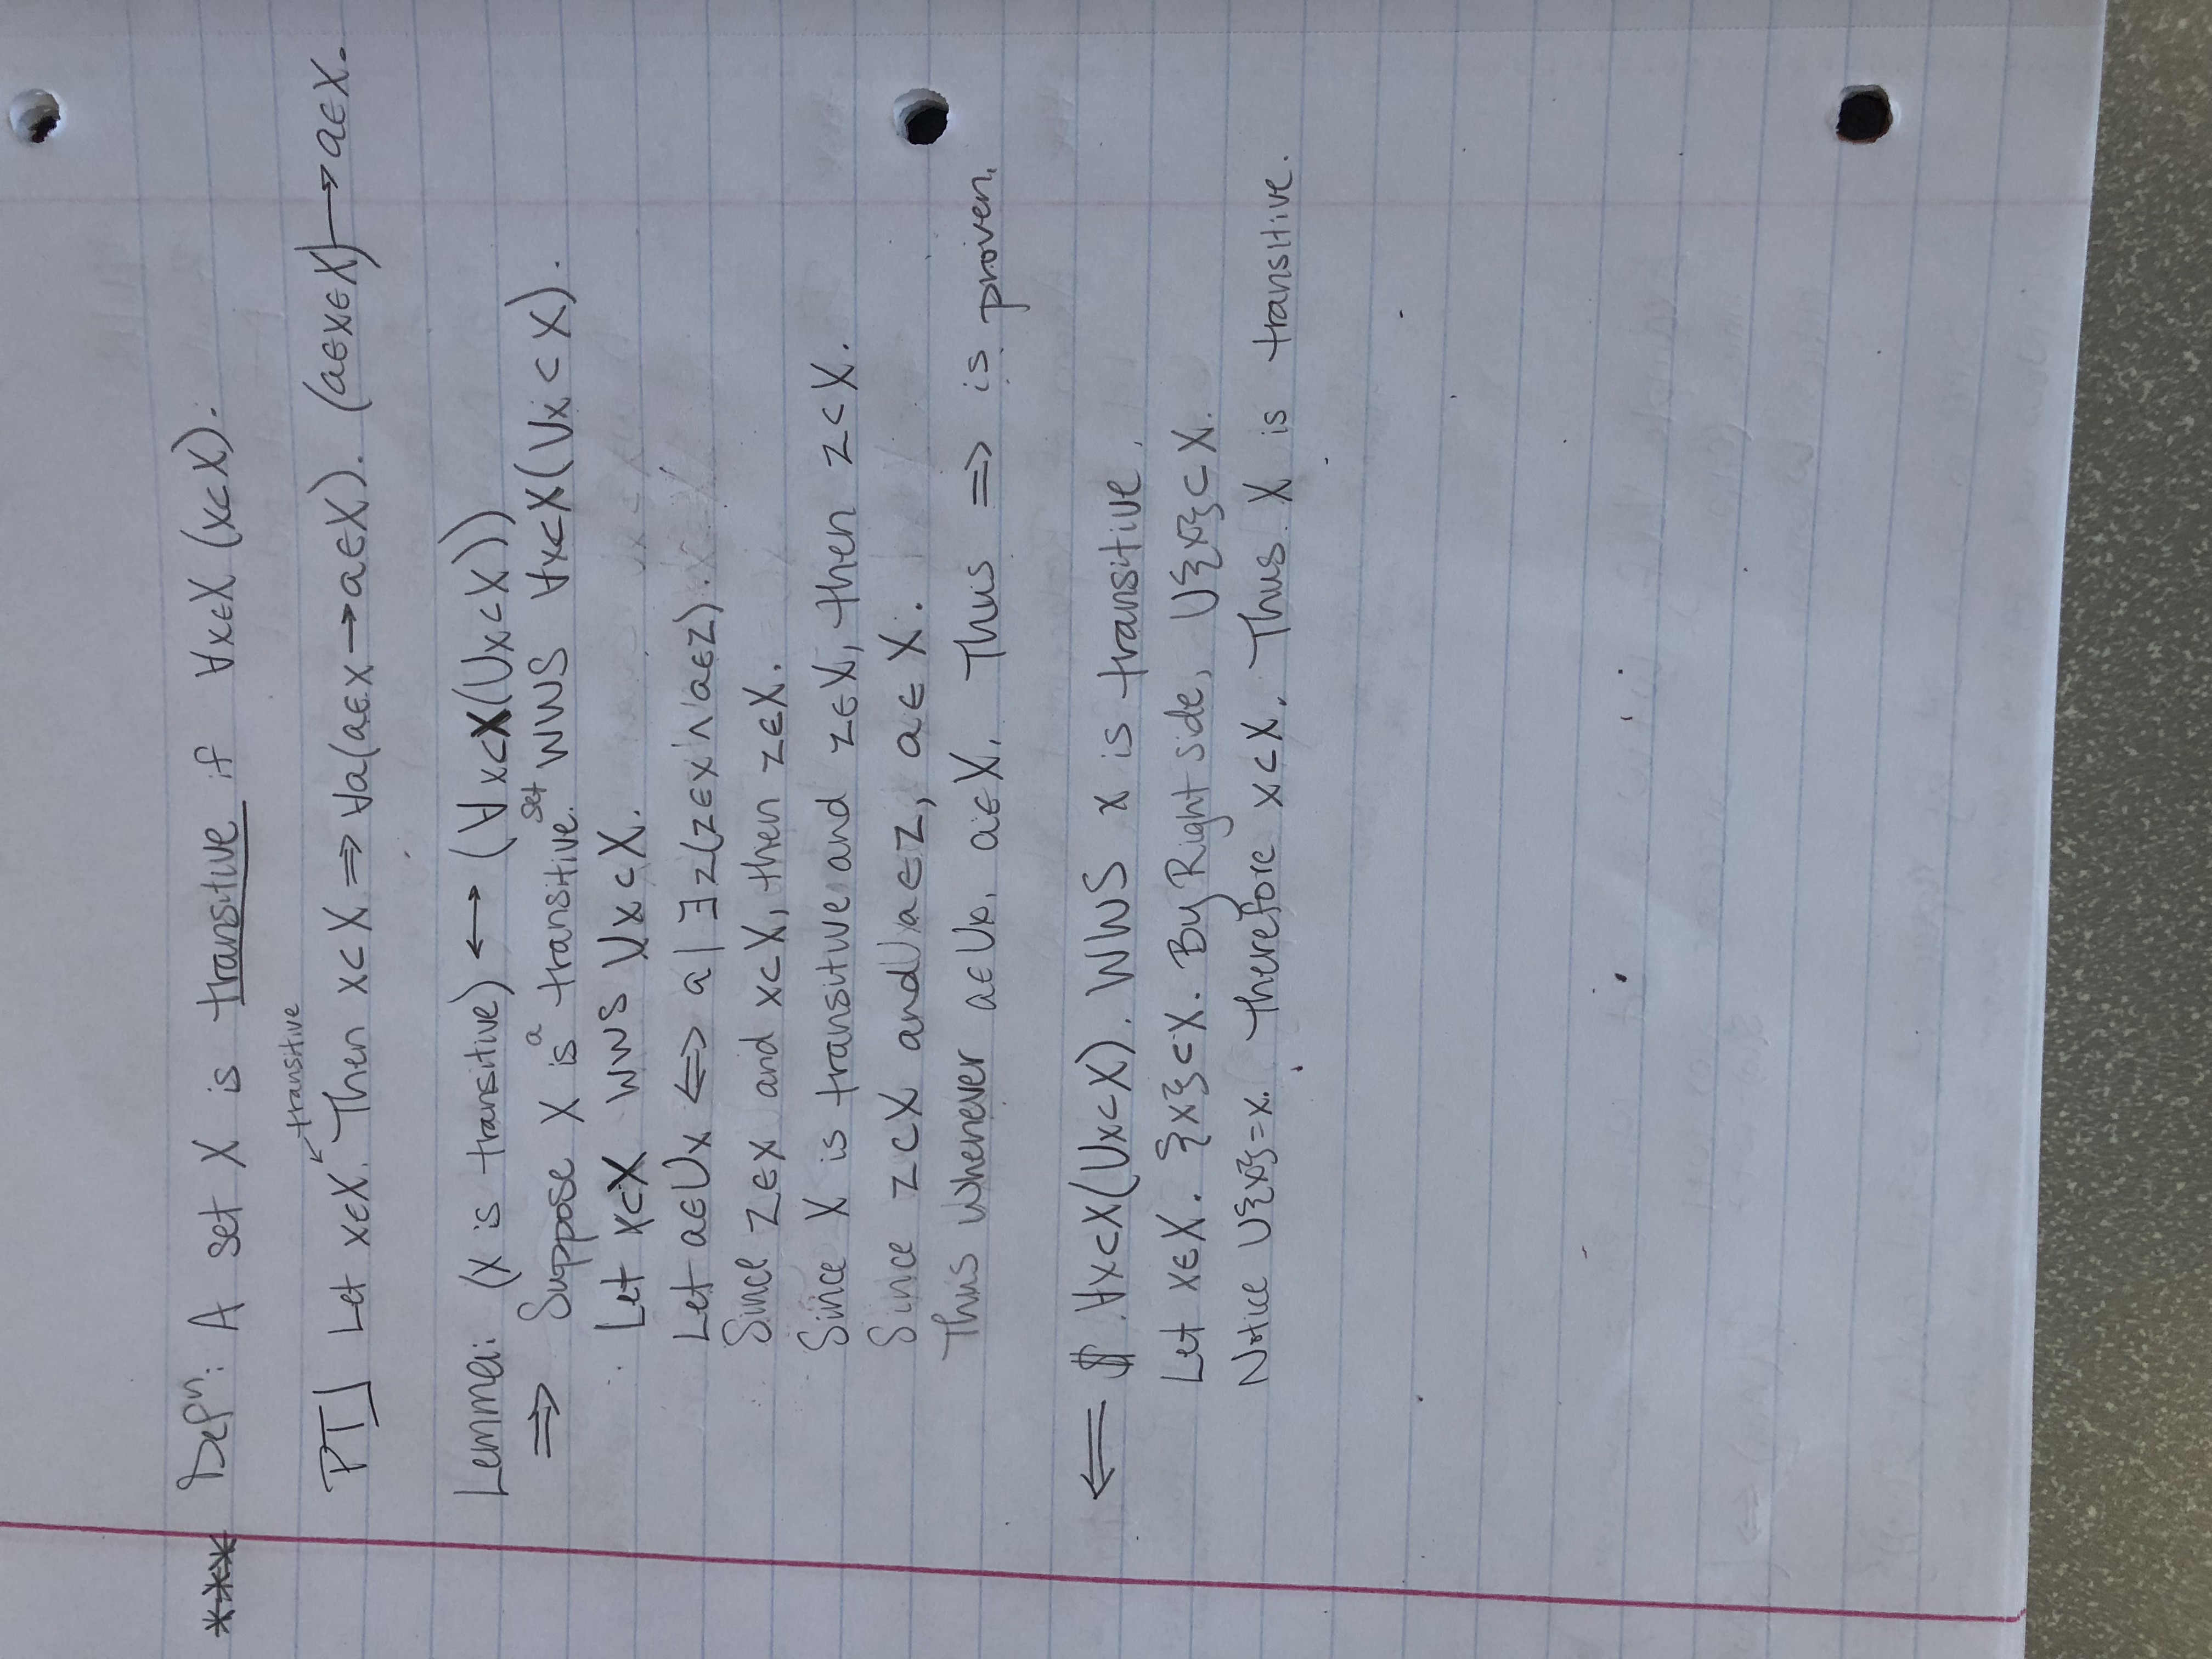 *** Defⁿ: A set X is transitive if ∀x∈X (x⊂X).
transitive
PT] Let x∈X. Then x⊂X ⇒ ∀a(a∈x→a∈X). (a∈x∈X)→a∈X.
Lemma: (X is transitive) ↔ (∀x⊂X(∪x⊂X))
⇒ Suppose X is a transitive set. WWS ∀x⊂X(∪x⊂X).
Let x⊂X WWS ∪x⊂X.
Let a∈∪x ⇔ a| ∃z(z∈x∧a∈z).
Since z∈x and x⊂X, then z∈X.
Since X is transitive and z∈X, then z⊂X.
Since z⊂X and a∈z, a∈X.
Thus whenever a∈∪x, a∈X. Thus ⇒ is proven.
⇐ $ ∀x⊂X(∪x⊂X). WWS X is transitive.
Let x∈X. {x}⊂X. By Right side, ∪{x}⊂X.
Notice ∪{x}=x. Therefore x⊂X. Thus X is transitive.